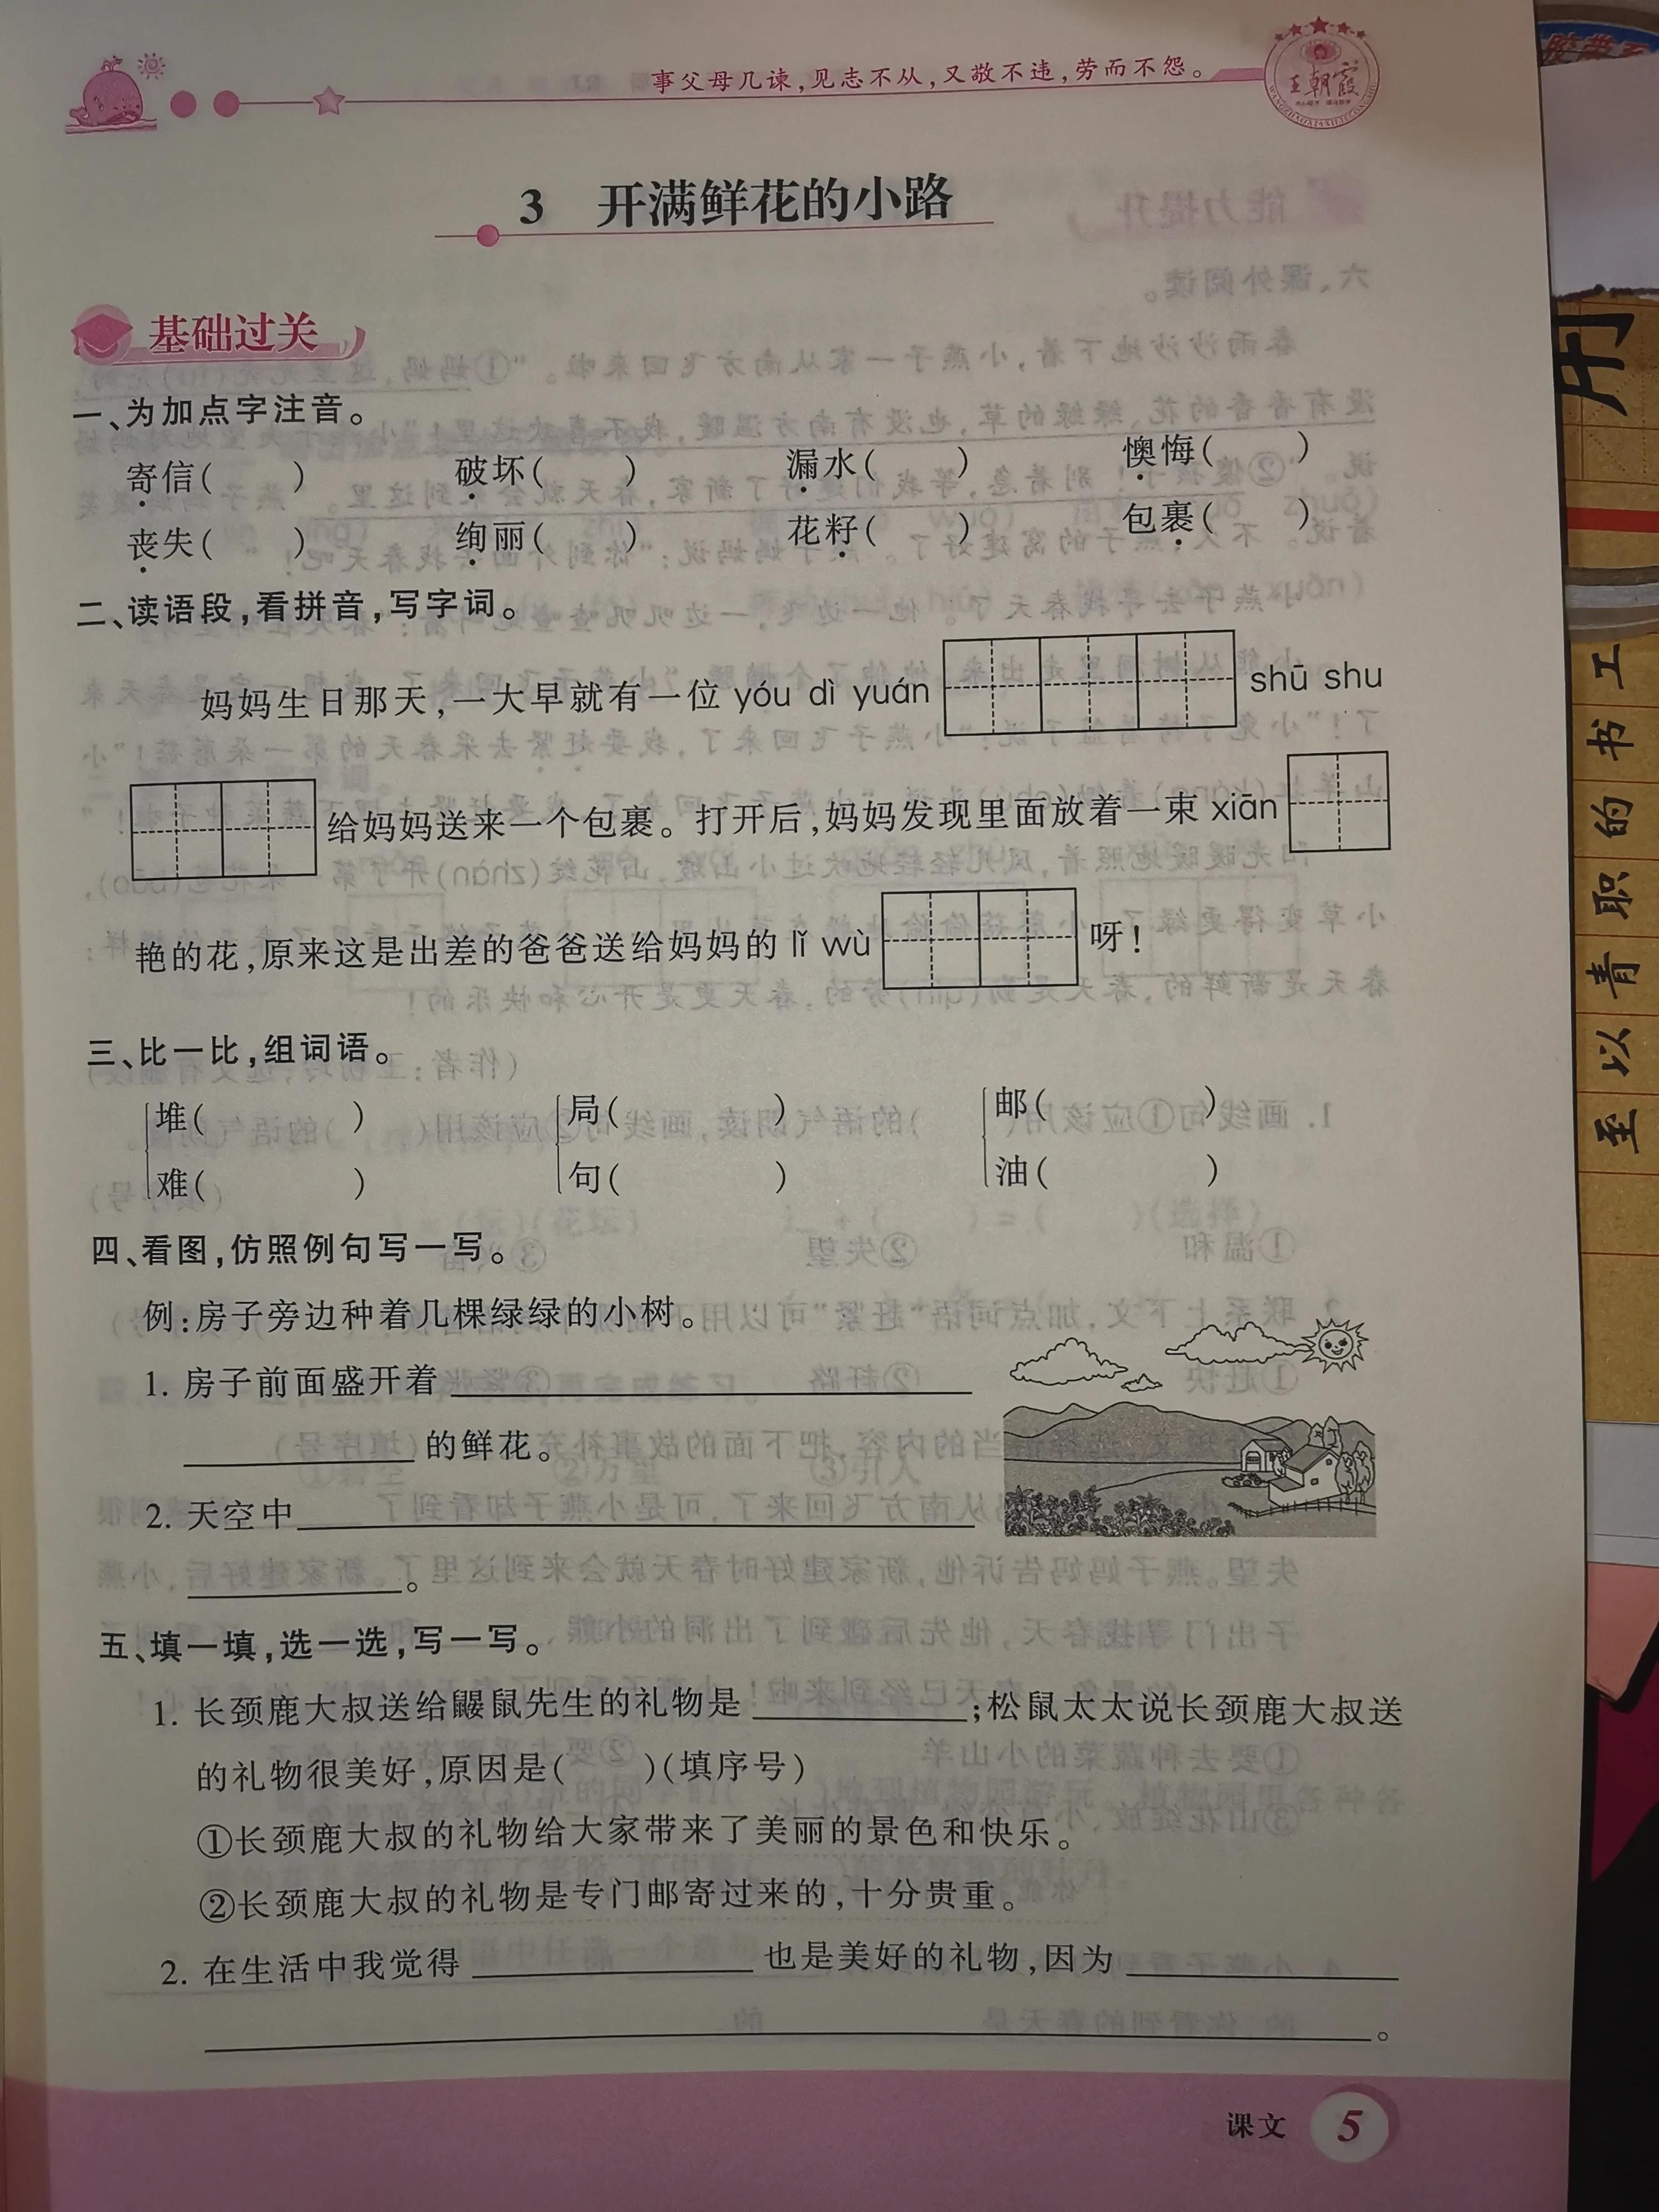 事父母几谏，见志不从，又敬不违，劳而不怨。
王朝霞
3 开满鲜花的小路
基础过关
一、为加点字注音。
寄信( ) 破坏( ) 漏水( ) 懊悔( )
丧失( ) 绚丽( ) 花籽( ) 包裹( )
二、读语段，看拼音，写字词。
妈妈生日那天，一大早就有一位 yóu dì yuán shū shu
给妈妈送来一个包裹。打开后，妈妈发现里面放着一束 xiān
艳的花，原来这是出差的爸爸送给妈妈的 lǐ wù 呀！
三、比一比，组词语。
堆( ) 局( ) 邮( )
难( ) 句( ) 油( )
四、看图，仿照例句写一写。
例：房子旁边种着几棵绿绿的小树。
1. 房子前面盛开着
的鲜花。
2. 天空中
。
五、填一填，选一选，写一写。
1. 长颈鹿大叔送给鼹鼠先生的礼物是 ；松鼠太太说长颈鹿大叔送
的礼物很美好，原因是( )(填序号)
①长颈鹿大叔的礼物给大家带来了美丽的景色和快乐。
②长颈鹿大叔的礼物是专门邮寄过来的，十分贵重。
2. 在生活中我觉得 也是美好的礼物，因为
。
课文 5
胶带
用
工
书
的
职
青
以
至